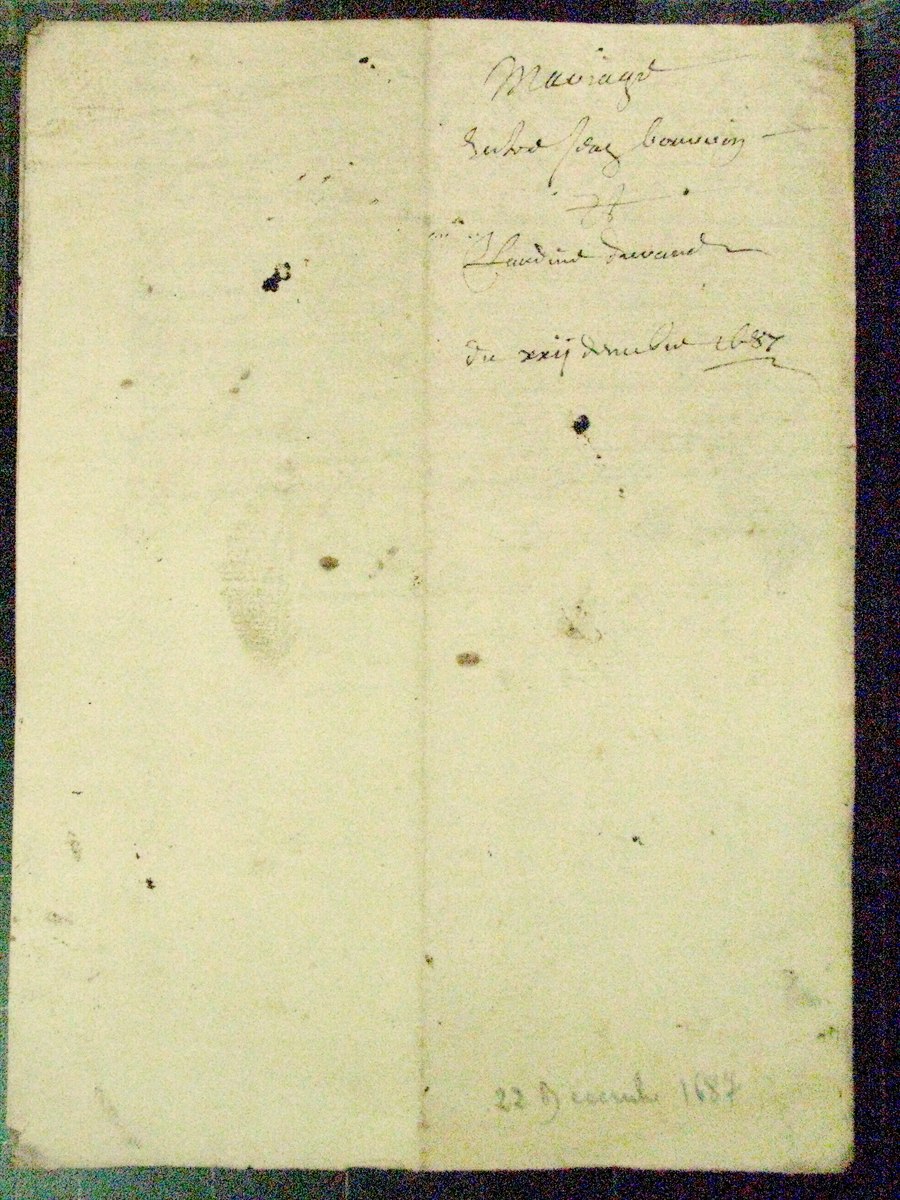 Mariage
dentre Jean bouvein
Et
Claudine durand
du xxij decembre 1687
22 Decembre 1687